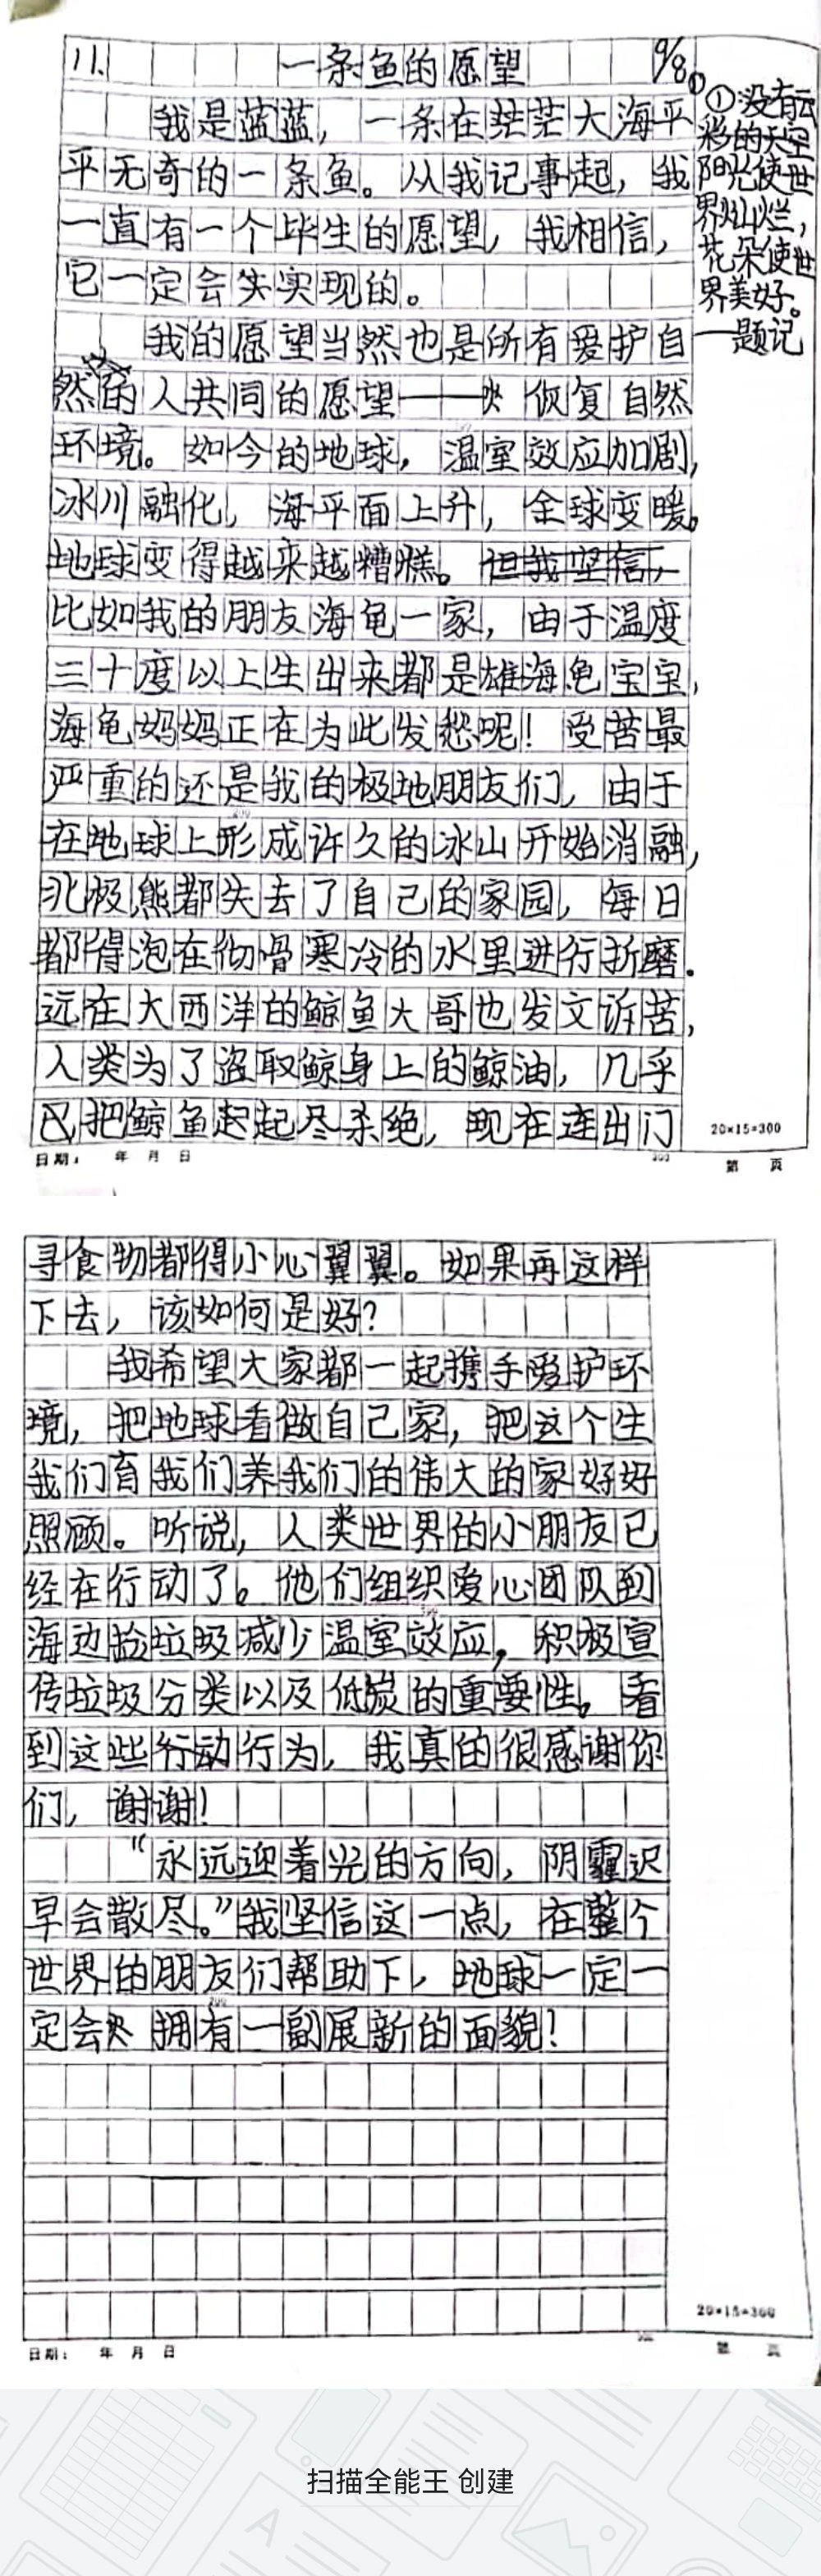 11. 一条鱼的愿望 9/8 ①
①没有云
彩的天空
阳光使世
界灿烂，
花朵使世
界美好。
——题记
我是蓝蓝，一条在茫茫大海平
平无奇的一条鱼。从我记事起，我
一直有一个毕生的愿望，我相信，
它一定会实现的。
我的愿望当然也是所有爱护自
然的人共同的愿望——恢复自然
环境。如今的地球，温室效应加剧，
冰川融化，海平面上升，全球变暖。
地球变得越来越糟糕。但我坚信，
比如我的朋友海龟一家，由于温度
三十度以上生出来都是雄海龟宝宝，
海龟妈妈正在为此发愁呢！受苦最
严重的还是我的极地朋友们，由于
在地球上形成许久的冰山开始消融，
北极熊都失去了自己的家园，每日
都得泡在彻骨寒冷的水里进行折磨.
远在大西洋的鲸鱼大哥也发文诉苦，
人类为了盗取鲸身上的鲸油，几乎
把鲸鱼起起尽杀绝，现在连出门
20×15=300
日期： 年 月 日
300
第 页
寻食物都得小心翼翼。如果再这样
下去，该如何是好？
我希望大家都一起携手爱护环
境，把地球看做自己家，把这个生
我们育我们养我们的伟大的家好好
照顾。听说，人类世界的小朋友已
经在行动了。他们组织爱心团队到
海边捡垃圾减少温室效应，积极宣
传垃圾分类以及低碳的重要性。看
到这些行动行为，我真的很感谢你
们，谢谢！
“永远迎着光的方向，阴霾迟
早会散尽。”我坚信这一点，在整个
世界的朋友们帮助下，地球一定一
定会拥有一副展新的面貌！
20×15=300
日期： 年 月 日
第 页
扫描全能王 创建